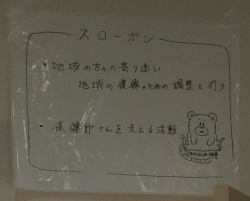 スローガン
・地域の方々に寄り添い
地域の復興のための調整を行う
・保健師さんを支える活動